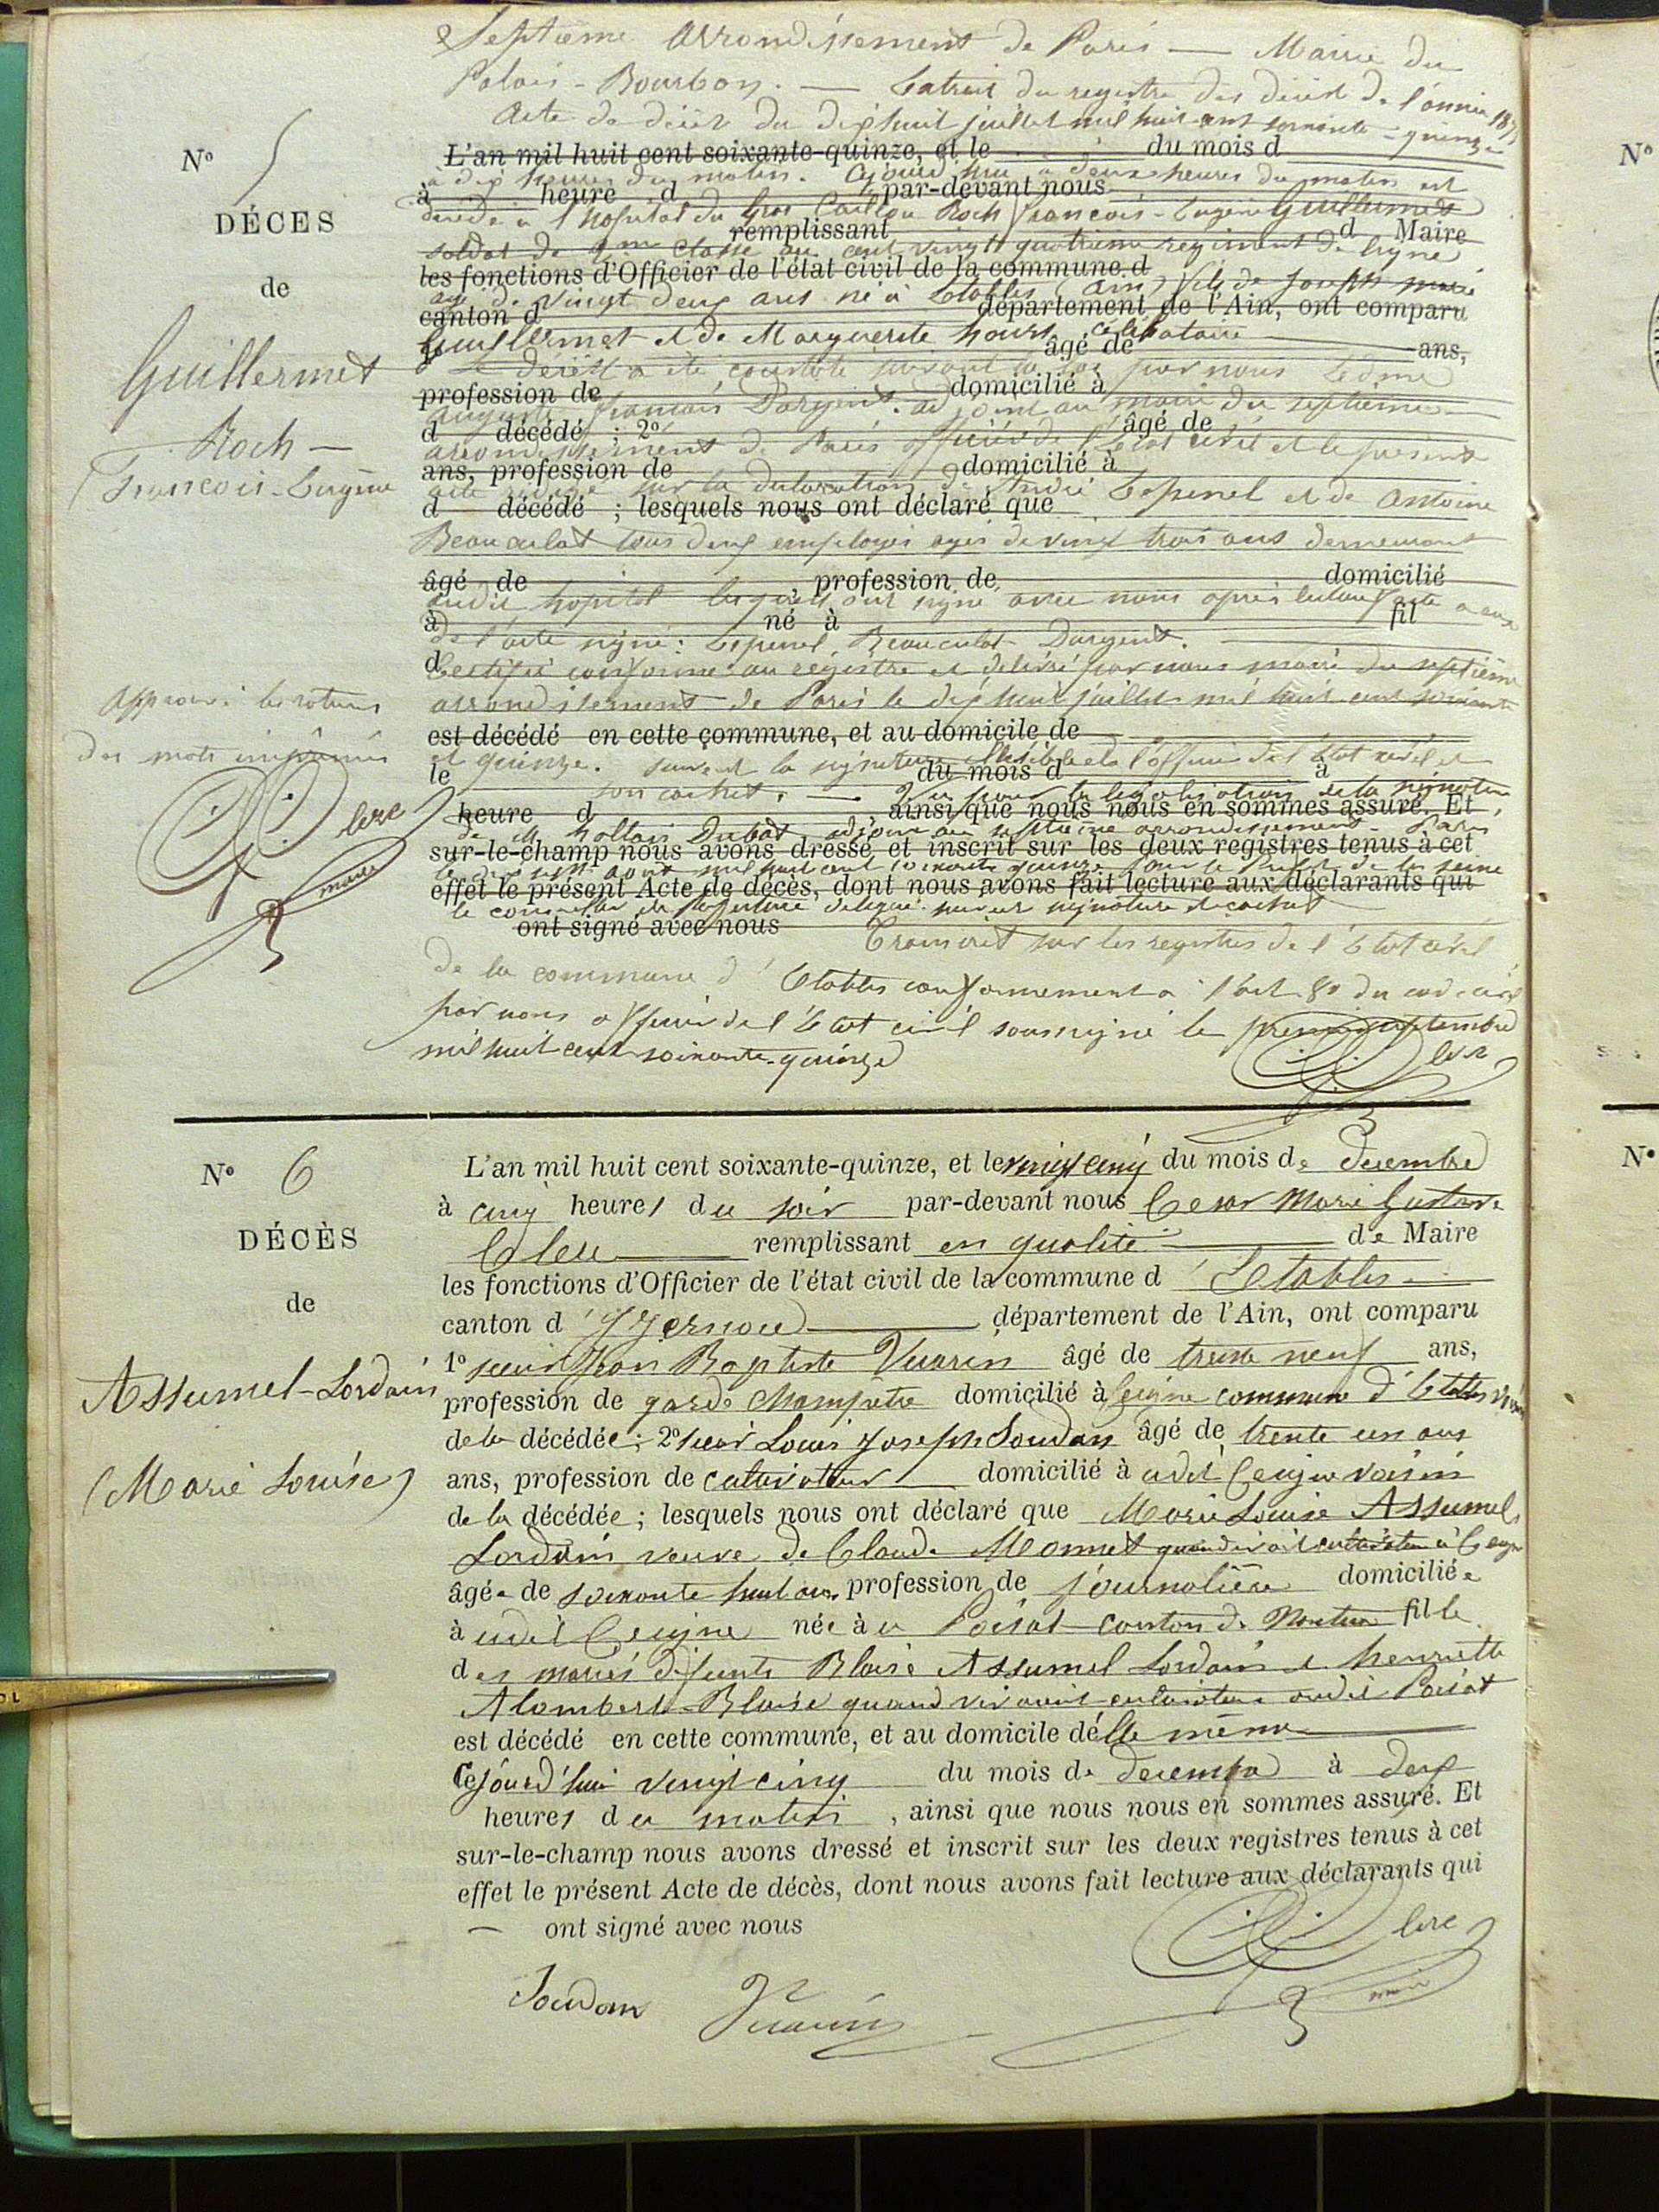 Septième arrondissement de Paris — Mairie du
Palais-Bourbon. — Extrait du registre des décès de l'année 1875
Acte de décès du dix huit juillet mil huit cent soixante-quinze
N° 5
L'an mil huit cent soixante-quinze, et le du mois d
à dix heures du matin. Aujourd'hui à deux heures du matin est
à heure d par-devant nous
décédé à l'hopital du Gros Caillou Roch François-Eugène Guillermet
DÉCES
remplissant d Maire
soldat de classe au cent vingt quatrième régiment de ligne
les fonctions d'Officier de l'état civil de la commune d
de
agé de vingt deux ans né à Etables (Ain) fils de Joseph marie
canton d département de l'Ain, ont comparu
Guillermet et de Marguerite célibataire
âgé de ans,
Guillermet
Le décès a été constaté suivant la loi par nous
profession de domicilié à
Auguste François Dargent adjoint au maire du septième
d décédé ; 2° âgé de
Roch —
arrondissement de Paris officier de l'Etat civil et le présent
ans, profession de domicilié à
François-Eugène
acte rédigé sur la déclaration de André Lepenel et de Antoine
d décédé ; lesquels nous ont déclaré que
Beauculat tous deux employés agés de vingt trois ans demeurant
âgé de profession de domicilié
audit hopital lesquels ont signé avec nous après lecture faite a eux
à né à fil
de l'acte signé: Lepenel, Beauculat Dargent.
d
Certifié conforme au registre et délivré par nous maire du septième
Approuvé les ratures
arrondissement de Paris le dix huit juillet mil huit cent soixante
des mots imprimés
est décédé en cette commune, et au domicile de
et quinze. suivent la signature illisible de l'officier de l'Etat civil et
le du mois d à
son cachet. — Vu pour la légalisation de la signature
Clerc
heure d ainsi que nous nous en sommes assuré. Et
de M Dubat, adjoint au septième arrondissement. Paris
sur-le-champ nous avons dressé et inscrit sur les deux registres tenus à cet
le dix sept aout mil huit cent soixante quinze pour le Préfet de la Seine
maire
effet le présent Acte de décès, dont nous avons fait lecture aux déclarants qui
le conseiller de Préfecture délégué. suivent signature et cachet
ont signé avec nous
Transcrit sur les registres de l'Etat civil
de la commune d'Etables conformement a l'art 80 du code civil
par nous officier de l'Etat civil soussigné le premier septembre
mil huit cent soixante-quinze
Clerc
N° 6
L'an mil huit cent soixante-quinze, et le vingt cinq du mois de decembre
à cinq heures du soir par-devant nous Cesar Marie Gustave
DÉCÈS
Clerc remplissant en qualité de Maire
les fonctions d'Officier de l'état civil de la commune d'Etables
de
canton d'Izernore département de l'Ain, ont comparu
1° sieur Jean Baptiste Vuarin âgé de trente neuf ans,
Assumel-Lordain
profession de garde champêtre domicilié à Ceigne commune d'Etables voisin
de la décédée ; 2° sieur Louis Joseph Soudan âgé de trente un ans
(Marie Louise)
ans, profession de cultivateur domicilié à udit Ceigne voisin
de la décédée ; lesquels nous ont déclaré que Marie Louise Assumel
Lordain veuve de Claude Monnet quand vivait cultivateur à Ceigne
âgée de soixante huit ans profession de journalière domiciliée
à udit Ceigne née à u Poisat canton de Nantua fille
des mariés défunts Blaise Assumel Lordain et henriette
Alombert-Blaise quand vivaient cultivateurs audit Poisat
est décédé en cette commune, et au domicile d'elle même
Cejourd'hui vingt cinq du mois de decembre à deux
heures du matin, ainsi que nous nous en sommes assuré. Et
sur-le-champ nous avons dressé et inscrit sur les deux registres tenus à cet
effet le présent Acte de décès, dont nous avons fait lecture aux déclarants qui
— ont signé avec nous
Clerc
maire
Soudan Vuarin
N°
N°